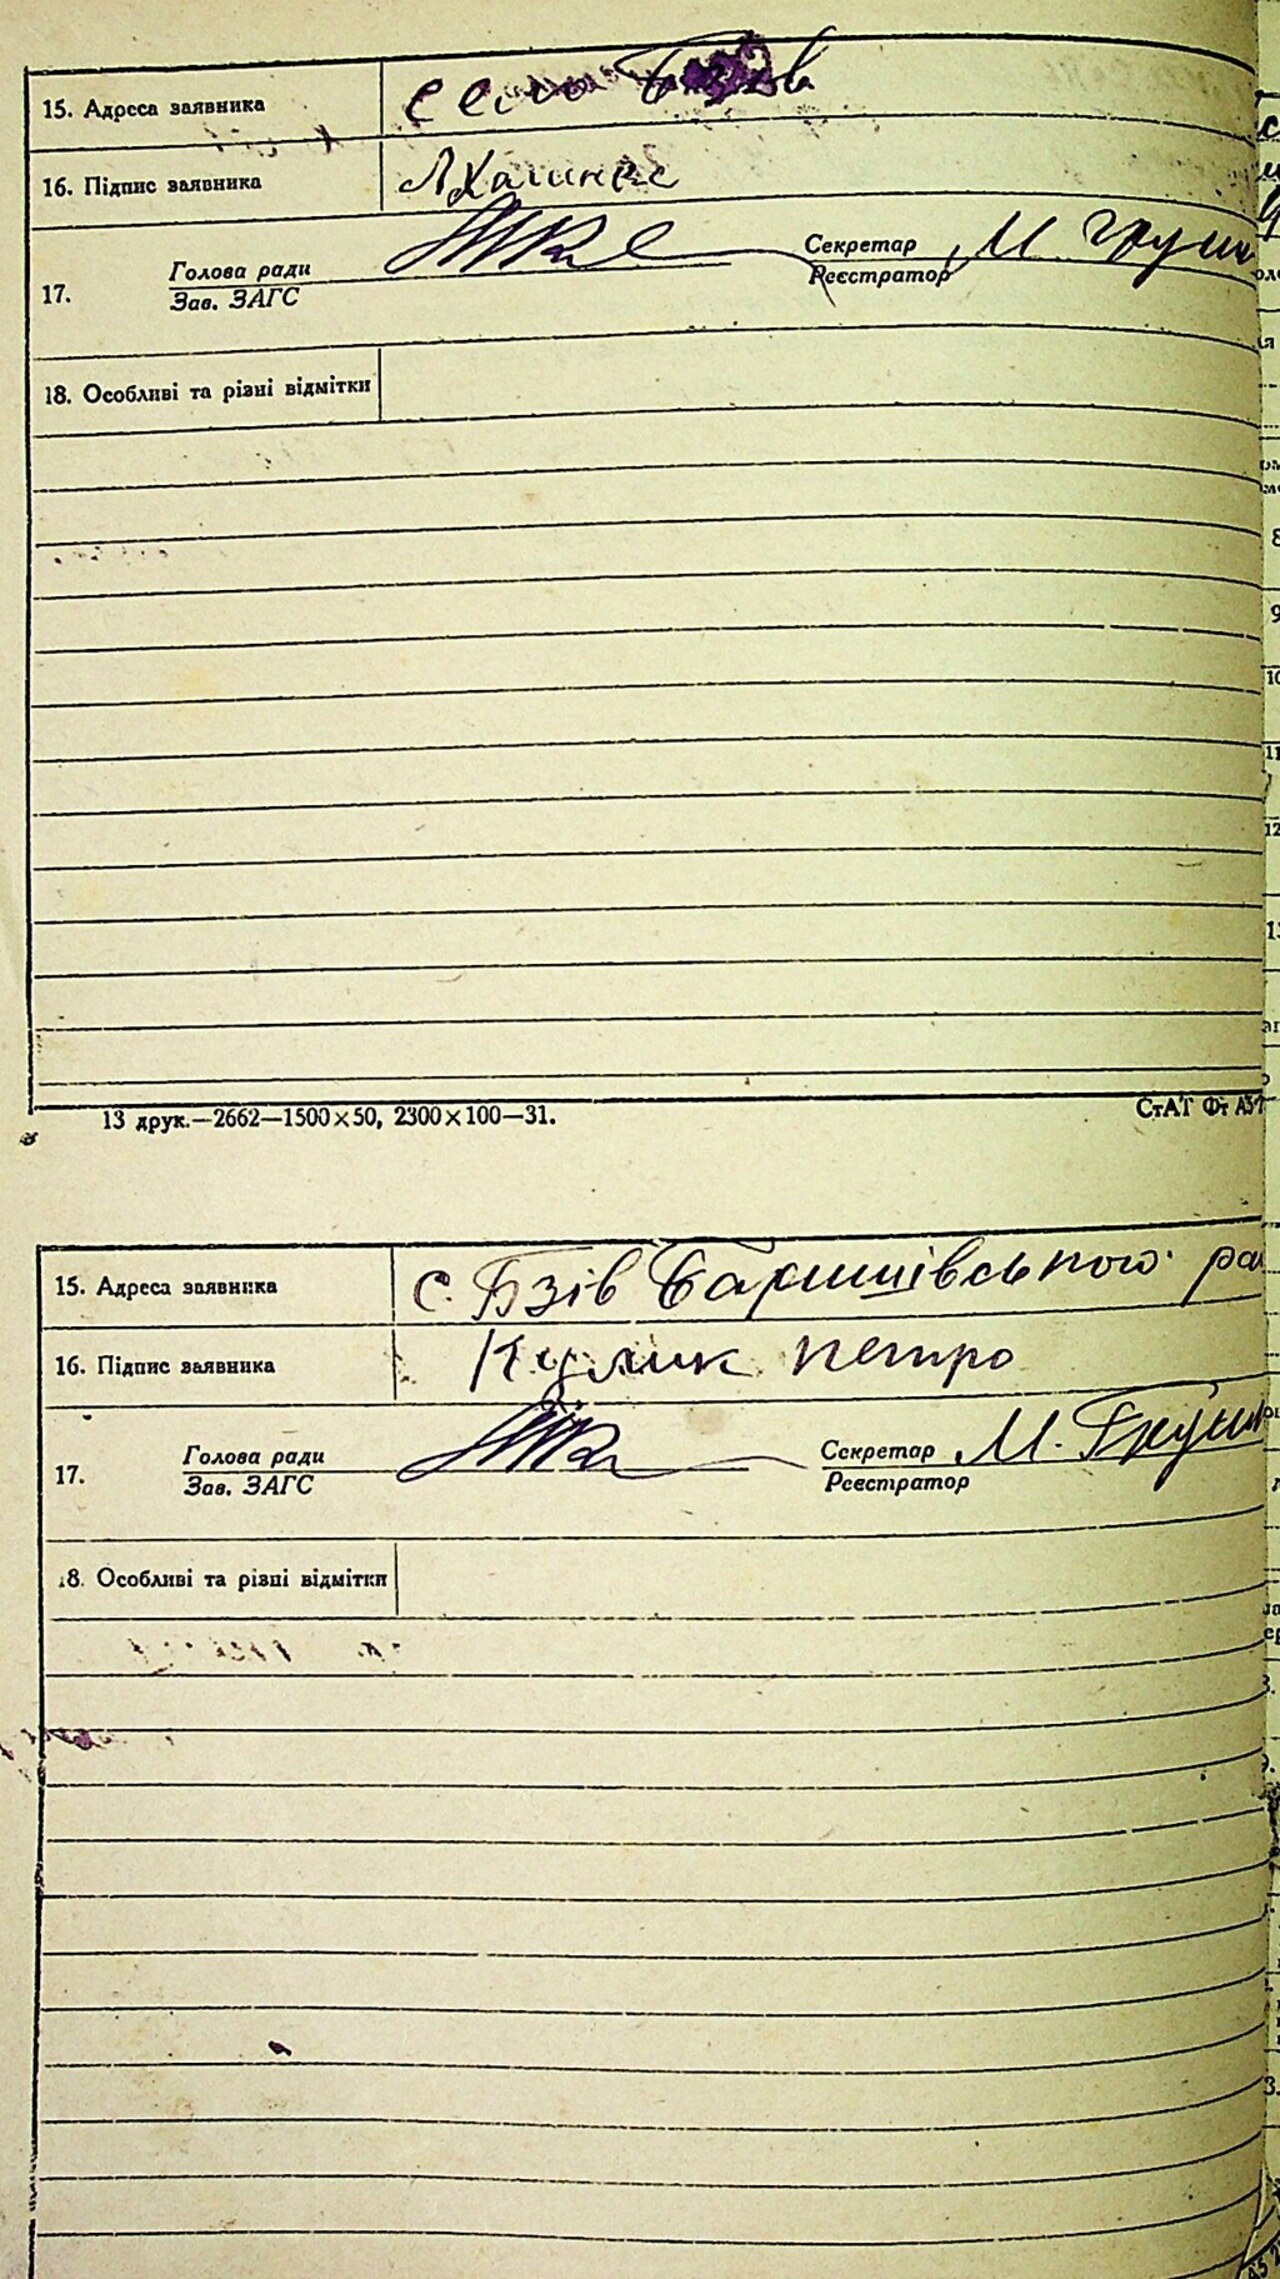 15. Адреса заявника село Бзів
16. Підпис заявника
Голова ради Секретар М Груш
17. Зав. ЗАГС Реєстратор
18. Особливі та різні відмітки
13 друк.—2662—1500×50, 2300×100—31. СтАТ Фт А5
15. Адреса заявника с. Бзів Баришівського ра
16. Підпис заявника Кулик петро
Голова ради Секретар М. Груш
17. Зав. ЗАГС Реєстратор
18. Особливі та різні відмітки